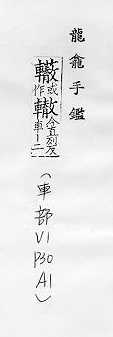 龍龕手鑑
或作轍今直列反車丨二
(車部V1P30A1)